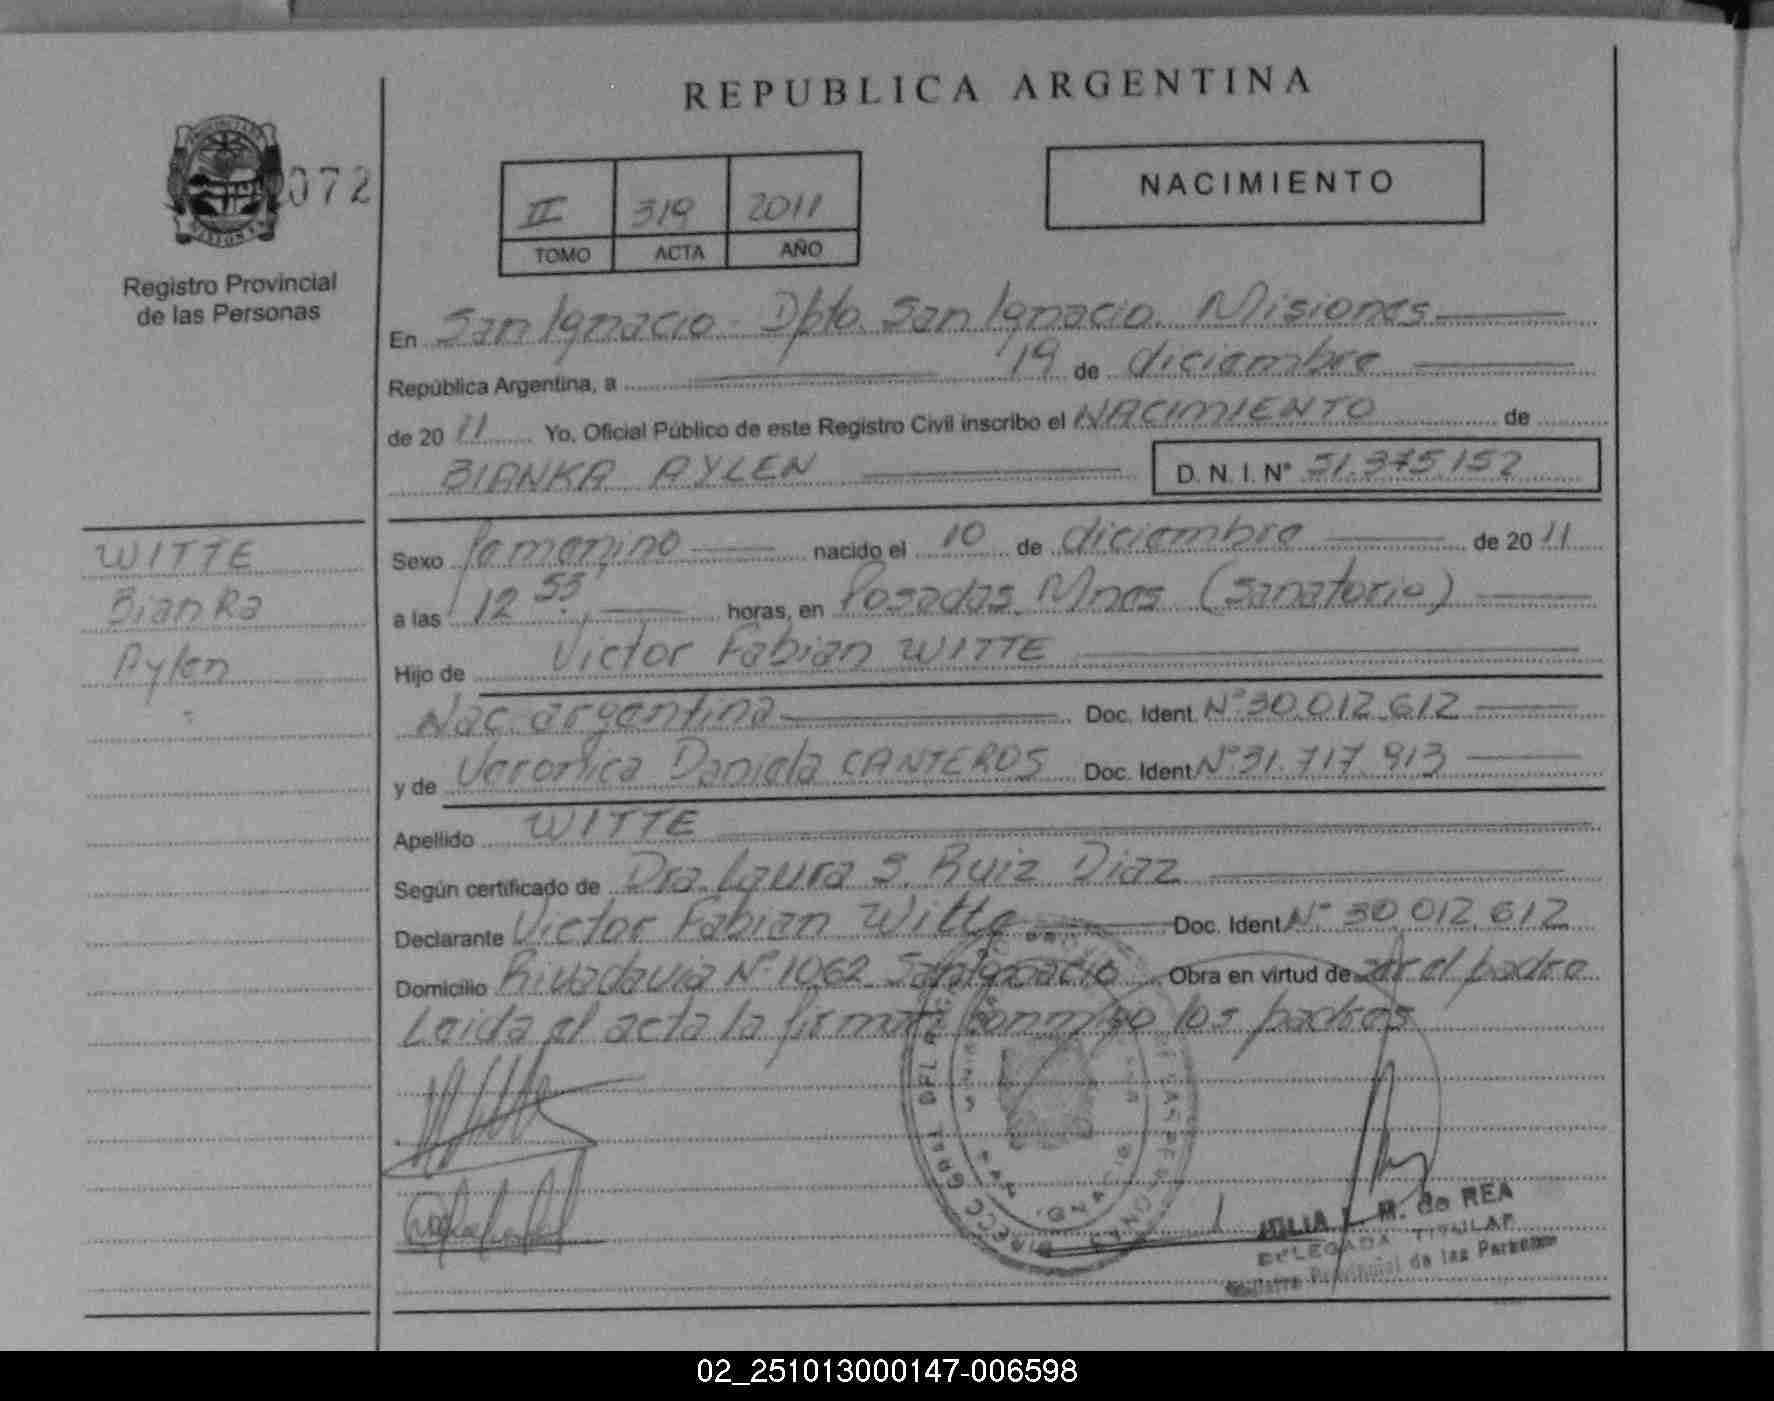 REPUBLICA ARGENTINA
072
Registro Provincial
de las Personas
II 319 2011
TOMO ACTA AÑO
NACIMIENTO
En San Ignacio - Dpto. San Ignacio. Misiones
República Argentina, a 19 de diciembre
de 20 11 Yo, Oficial Público de este Registro Civil inscribo el NACIMIENTO de
BIANKA AYLEN D. N. I. N° 51.375.152
WITTE
Bianka
Aylen
Sexo femenino nacido el 10 de diciembre de 20 11
a las 12 53 horas, en Posadas Mnes (Sanatorio)
Hijo de Victor Fabian WITTE
Nac. argentina Doc. Ident. N° 30.012.612
y de Veronica Daniela CANTEROS Doc. Ident. N° 31.717.913
Apellido WITTE
Según certificado de Dra. Laura S. Ruiz Diaz
Declarante Victor Fabian Witte Doc. Ident. N° 30.012.612
Domicilio Rivadavia N° 1062 San Ignacio Obra en virtud de ser el padre
Leida el acta la firman conmigo los padres
JULIA M. de REA
DELEGADA TITULAR
Provincial de las Personas
02_251013000147-006598